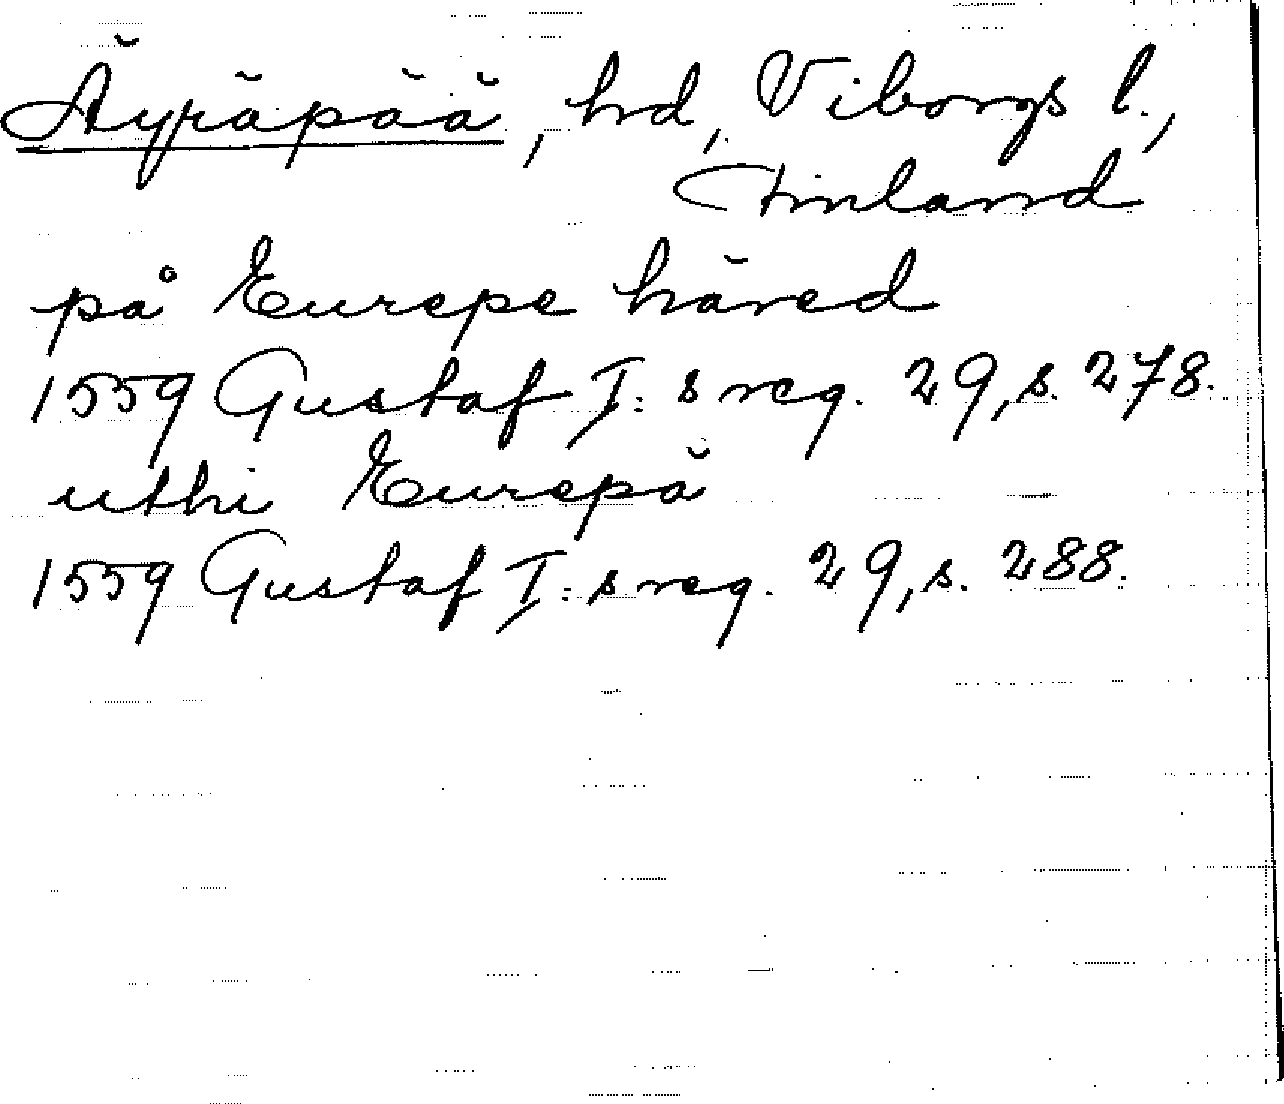 Äyräpää, hd, Viborgs l.,
Finland
på Eurepe häred
1559 Gustaf I:s reg. 29, s. 278.
uthi Eurepä
1559 Gustaf I:s reg. 29, s. 288.